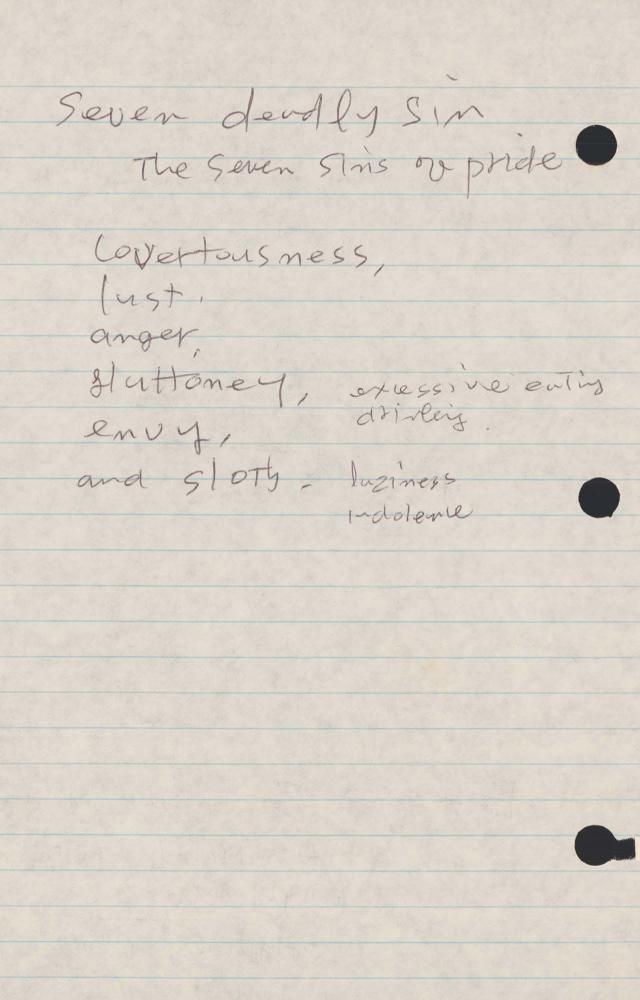 Seven deadly Sin
The Seven Sins of pride
Covertousness,
lust,
anger,
gluttoney, excessive eating
drinking.
envy,
and sloth - laziness
indolence